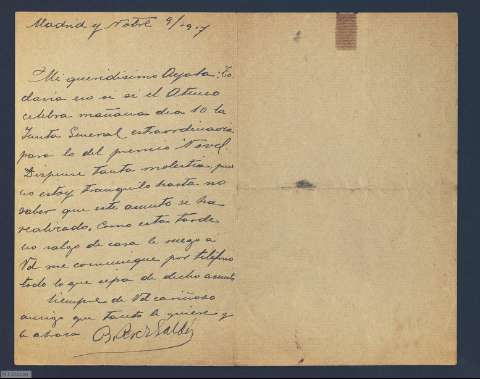 Madrid y Nobre 9/-917
Mi queridísimo Ayala: To
davía no sé si el Ateneo
celebra mañana día 10 la
Junta General extraordinaria
para lo del premio Novel.
Dispense tanta molestia, pues
no estoy tranquilo hasta no
saber que este asunto se ha
realizado. Como estas tardes
no salgo de casa le ruego a
Vd me comunique por teléfono
todo lo que sepa de dicho asunto
Siempre de Vd cariñoso
amigo que tanto le quiere y
le abraza B. Pérez Galdós